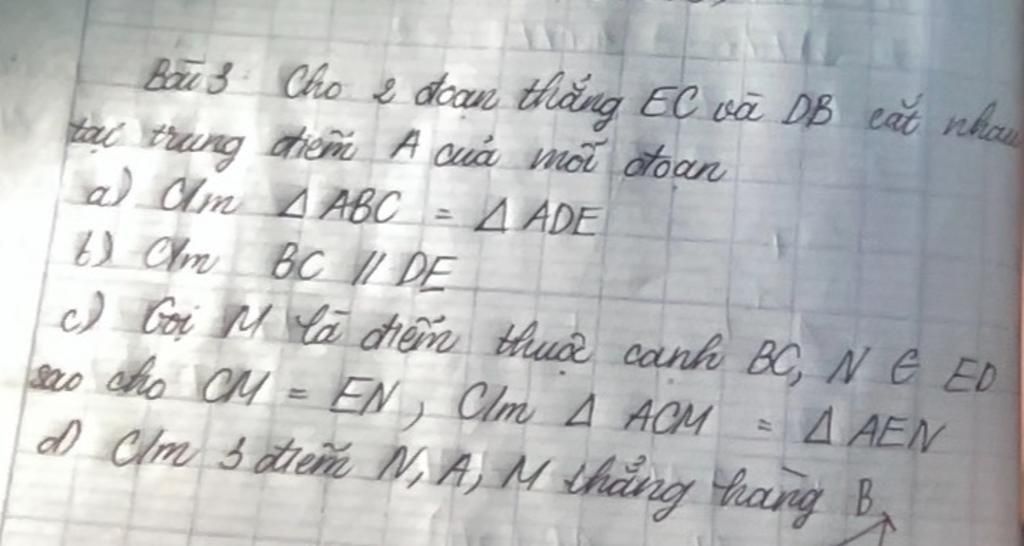 Bài 3: Cho 2 đoạn thẳng EC và DB cắt nhau
tại trung điểm A của mỗi đoạn
a) C/m Δ ABC = Δ ADE
b) C/m BC // DE
c) Gọi M là điểm thuộc cạnh BC, N ∈ ED
sao cho CM = EN, C/m Δ ACM = Δ AEN
d) C/m 3 điểm N, A, M thẳng hàng B